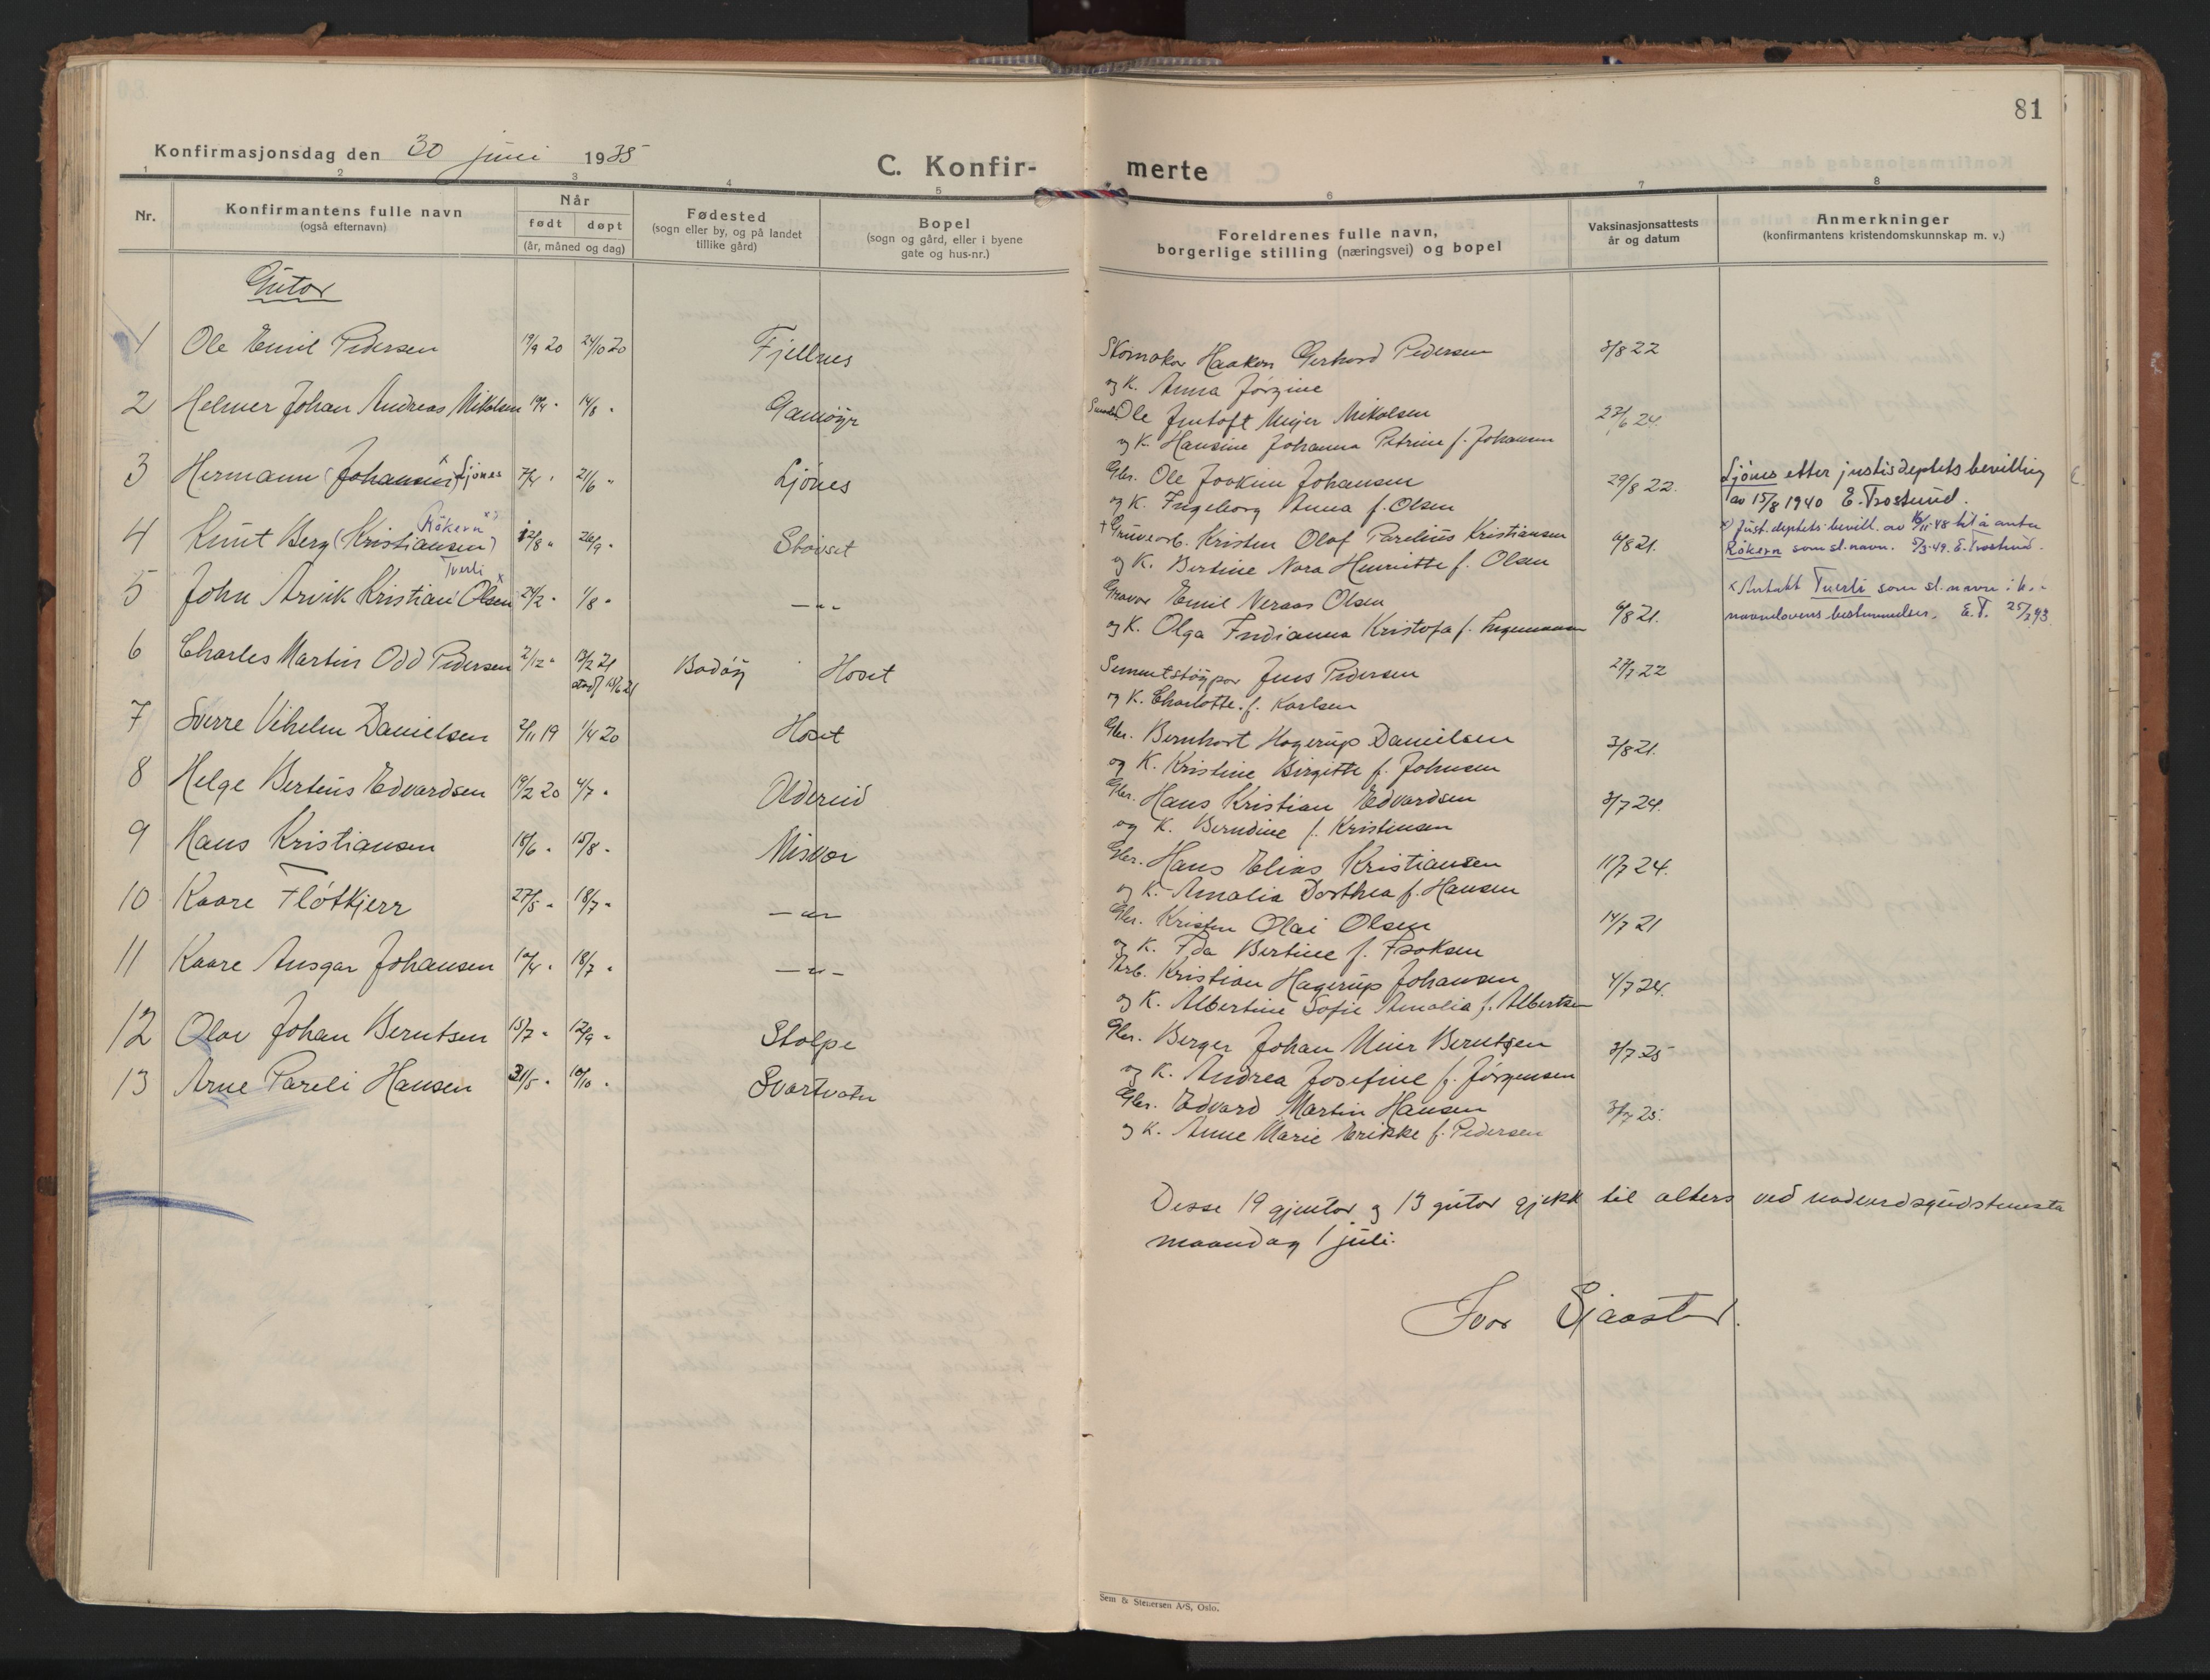 81
Konfirmasjonsdag den 30 juni 1935
C. Konfir-
merte
1 2 3 4 5 6 7 8
Nr.
Konfirmantens fulle navn
(også efternavn)
Når
født døpt
(år, måned og dag)
Fødested
(sogn eller by, og på landet
tillike gård)
Bopel
(sogn og gård, eller i byene
gate og hus-nr.)
Foreldrenes fulle navn,
borgerlige stilling (næringsvei) og bopel
Vaksinasjonsattests
år og datum
Anmerkninger
(konfirmantens kristendomskunnskap m. v.)
Gutar
1 Ole Emil Pedersen 19/9 20 24/10 20 Fjellnes
Skomakar Haakon Gerhard Pedersen 3/8 22
og K. Anna Jørgine
2 Helmer Johan Andreas Mikalsen 14/8 " Gamøyr
Ole Jentoft Meyer Mikalsen 27/6 24.
og K. Hansine Johanna Petrine f. Johansen
3 Hermann (Johansen) x Ljønes 7/4 " 21/6 " Ljönes
Gbr. Ole Joakim Johansen 29/8 22.
og K. Ingeborg Anna f. Olsen
Ljönes etter justisdeptets bevilling
av 15/8 1940 E. Trosterud.
Røkern x)
4 Knut Berg (Kristiansen) 12/8 " 26/9 " Støvset
+ Gruvearb. Kristen Olaf Parelius Kristiansen 6/8 21.
og K. Bertine Nora Henriette f. Olsen
x) Just. deptets bevill. av 16/11-48 til å anta
Røkern som sl.navn. 5/3-49. E. Trosterud.
Tverli
5 John Arvik Kristian Olsen x 24/2 " 1/8 " — " —
Gravar Emil Neraas Olsen 6/8 21.
og K. Olga Indianna Kristofa f. Ingemann
x Antatt Tverli som sl. navn i h. "
navnelovens bestemmelser. E. T. 25/2 43.
6 Charles Martin Odd Pedersen 2/12 " 13/2 21 Bodöy Hoset
stadf 13/6 21
Sementstöypar Jens Pedersen 27/7 22
og K. Charlotte f. Karlsen
7 Sverre Vihelm Danielsen 2/11 19 1/4 20 Hoset
Gbr. Bernhart Hagerup Danielsen 3/8 21.
og K. Kristine Birgitte f. Johnsen
8 Helge Berteus Edvardsen 19/2 20 4/7 " Oldereid
Gbr. Hans Kristian Edvardsen 3/7 24.
og K. Berndine f. Kristensen
9 Hans Kristiansen 18/6 " 15/8 " Misvær
Gbr. Hans Elias Kristiansen 11/7 24.
og K. Amalia Dorthea f. Hansen
10 Kaare Fløtkjerr 27/5 " 18/7 " — " —
Gbr. Kristen Olai Olsen 14/7 21
og K. Ida Bertine f. Isaksen
11 Kaare Ansgar Johansen 10/4 " 18/7 " — " —
Arb. Kristian Hagerup Johansen 4/7 24.
og K. Albertine Sofie Amalia f. Albertsen
12 Olav Johan Berntsen 15/7 " 12/9 " Stolpe
Gbr. Berger Johan Meier Berntsen 3/7 25
og K. Andrea Josefine f. Jørgensen
13 Arne Pareli Hansen 31/5 " 10/10 " Svartvatn
Gbr. Edvard Martin Hansen 3/7 25.
og K. Anne Marie Erikke f. Pedersen
Desse 19 gjentor og 13 gutar gjekk til alters ved nadverdsgudstenesta
maandag 1 juli.
Ivar Sjaastad.
Sem & Stenersen A/S, Oslo.